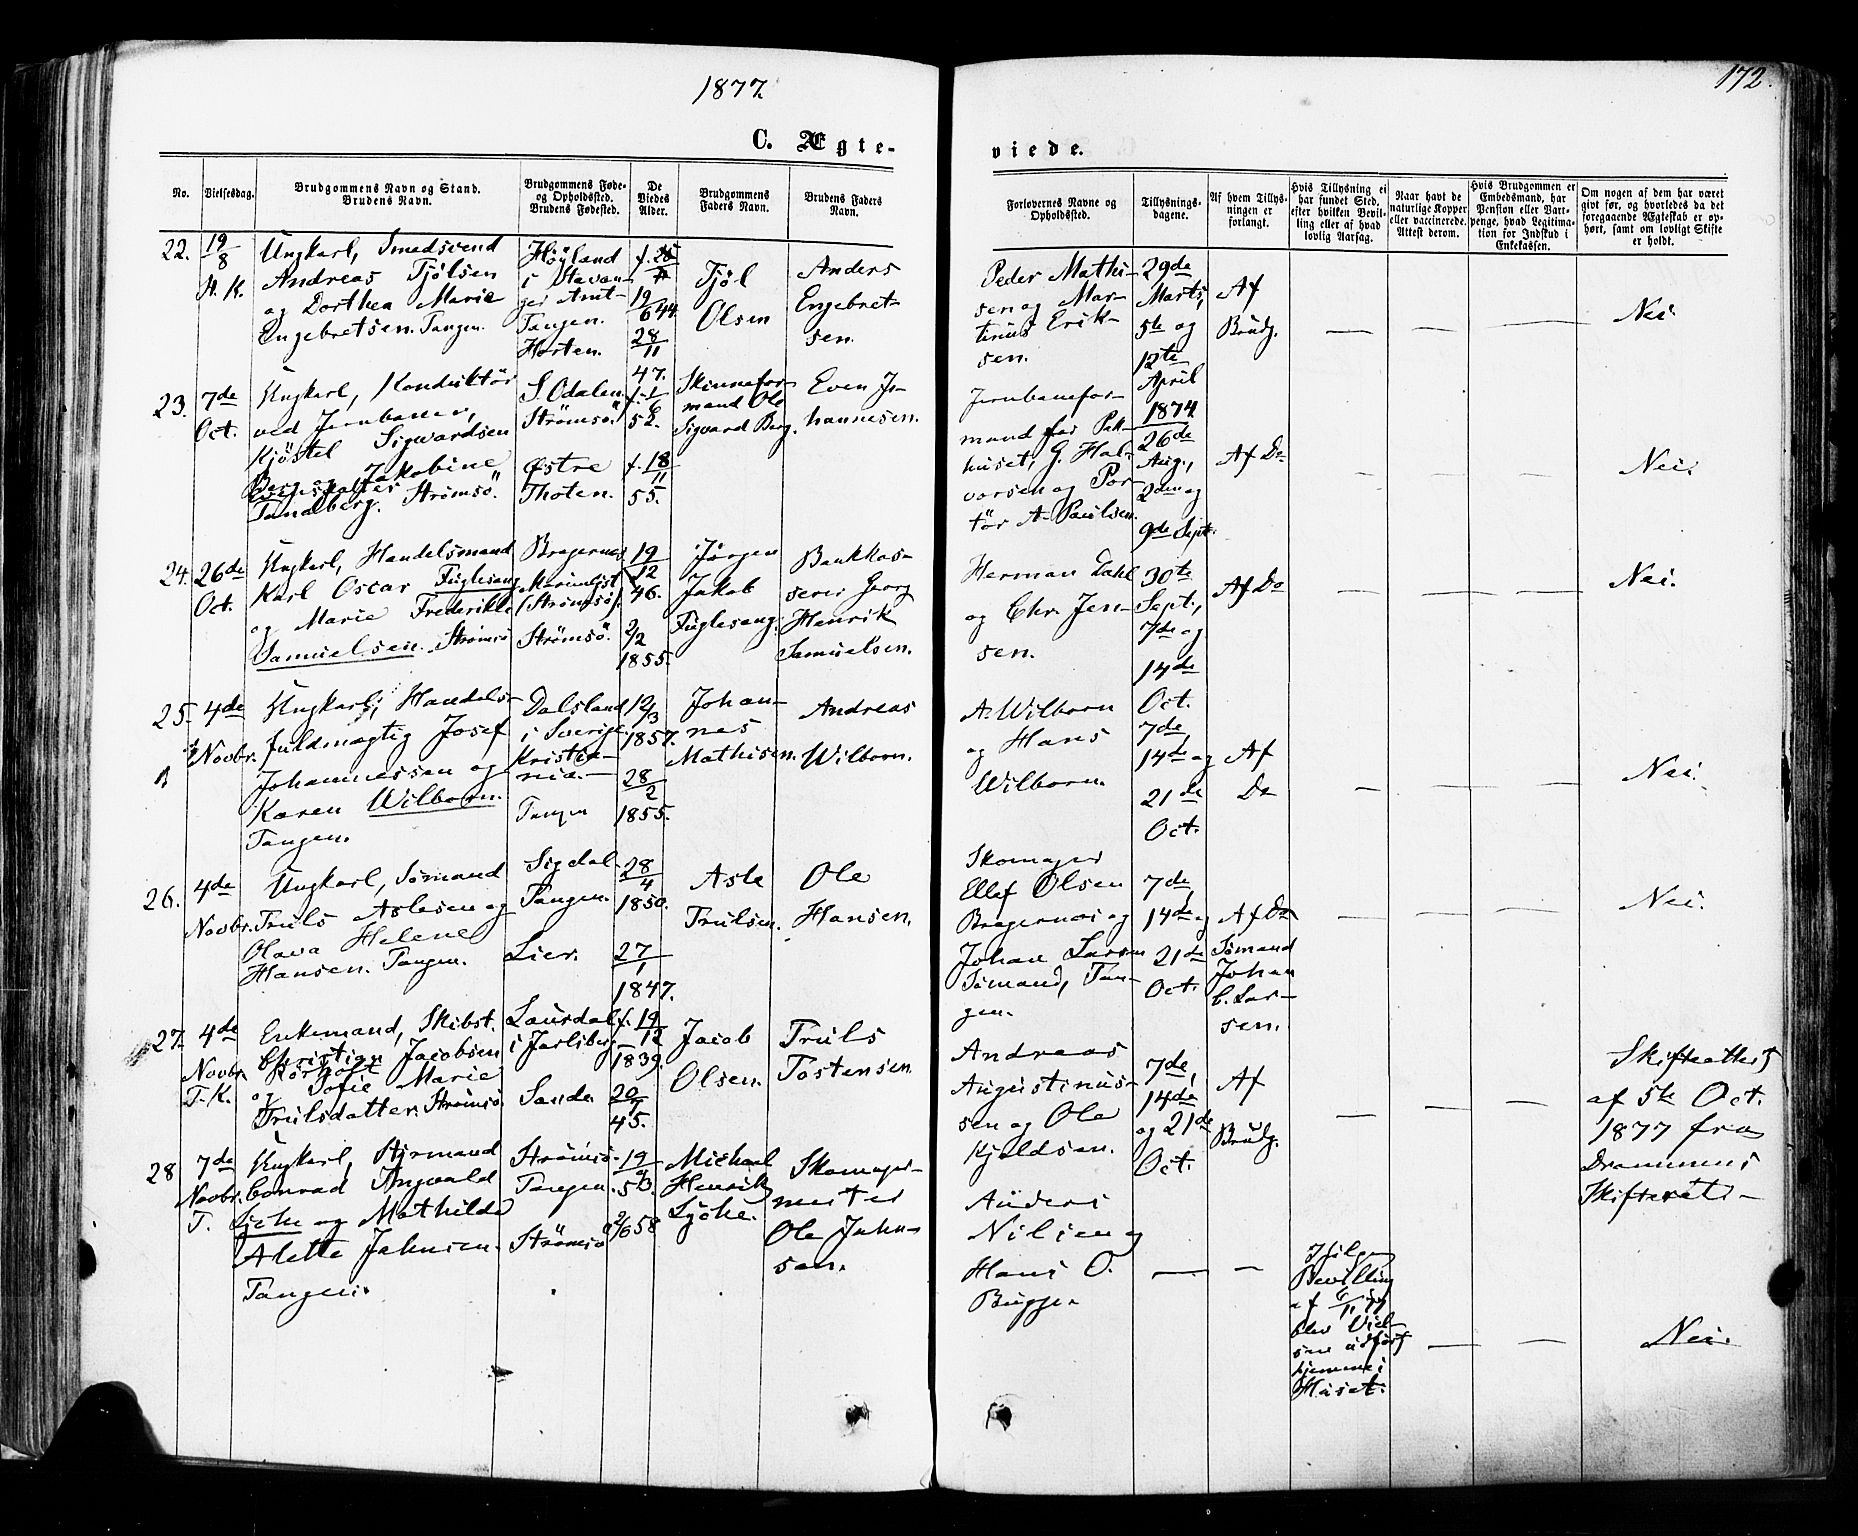 1877.
172.
C. Ægte-
viede.
No.
Vielsesdag.
Brudgommens Navn og Stand.
Brudens Navn.
Brudgommens Føde-
og Opholdssted.
Brudens Fødested.
De
Viedes
Alder.
Brudgommens
Faders Navn.
Brudens Faders
Navn.
Forlovernes Navne og
Opholdssted.
Tillysnings-
dagene.
Af hvem Tillys-
ningen er
forlangt.
Hvis Tillysning ei
har fundet Sted,
efter hvilken Bevil-
ling eller af hvad
lovlig Aarsag.
Naar havt de
naturlige Kopper
eller vaccinerede.
Attest derom.
Hvis Brudgommen er
Embedsmand, har
Pension eller Vart-
penge, hvad Legitima-
tion for Indskud i
Enkekassen.
Om nogen af dem har været
givt før, og hvorledes da det
foregaaende Ægteskab er op-
hørt, samt om lovligt Skifte
er holdt.
22.
19/8
Ungkarl, Smedsvend
Andreas Tjølsen
og Dorthea Marie
Engebretsen. Tangen.
Höyland
i Stavan-
ger Amt-
Tangen.
Horten.
19/6 44
28/11
47.
Tjöl
Olsen
Anders
Engebret-
sen.
Peder Mathi-
sen og Mar-
tinus Erik-
sen.
29de
Marts,
5te og
12te
April
1874
Af
Brudg.
—
—
—
Nei.
23.
7de
Oct.
Ungkarl, Konduktör
ved Jernbanen,
Kjöstel Sigvardsen
Berg og Jakobine
Tandberg. Strömsö.
S. Odalen
Strömsö.
Østre
Thoten.
52.
f. 18/11
55.
Skinnefor-
mand Ole
Sigvard Berg.
Even Jo-
hannesen.
Jernbanefor-
mand
G. Hal-
vorsen og Por-
tör A. Paulsen.
26de
Aug.,
2den og
9de Sept.
Af Do
—
—
—
Nei.
24.
26de
Oct.
Ungkarl, Handelsmand
Karl Oscar Fuglesang
og Marie Frederikke
Samuelsen. Strömsö
Bragernes
(Strömsö).
Strömsö.
19/12
46.
2/2
1855.
Jörgen
Jakob
Fuglesang.
Bankkas-
serer Georg
Henrik
Samuelsen.
Herman Dahl
og Chr. Jen-
sen.
30te
Sept.,
7de og
14de
Oct.
Af Do
—
—
—
Nei.
25.
4de
Novbr.
Ungkarl, Handels-
fuldmægtig Josef
Johannessen og
Karen Wilborn.
Tangen.
Dalsland
i Sverige
Kristia-
nia.—
Tangen
12/3
1857.
28/2
1855.
Johan-
nes
Mathisen.
Andreas
Wilborn.
A. Wilborn
og Hans
Wilborn.
7de,
14de og
21de
Oct.
Af
Do
—
—
—
Nei.
26.
4de
Novbr.
Ungkarl, Sömand
Truls Aslesen og
Olava Helene
Hansen. Tangen.
Sigdal-
Tangen.
Lier.
28/4
1850.
27/1
1847.
Asle
Trulsen.
Ole
Hansen.
Skomager
Ellef Olsen
Bragernes og
Johan Larsen
Sömand, Tan-
gen.
7de,
14de og
21de
Oct.
Af Do
Sömand
Johan
C. Lar-
sen.
—
—
—
Nei.
27.
4de
Novbr.
T. K.
Enkemand, Skibst.
Christian Jacobsen
og Sofie Marie
Trulsdatter. Strömsö.
Laurdal
i Jarlsberg
Sande
f. 19/12
1839.
20/7
45.
Jacob
Olsen.
Truls
Tostensen
Andreas
Augustinus-
sen og Ole
Kjeldsen.
7de,
14de
og 21de
Oct.
Af
Brudg.
—
—
—
Skifteattest
af 5te Oct.
1877 fra
Drammens
Skifteret.—
28
7de
Novbr.
T.
Ungkarl, Styrmand
Conrad Ingvald
Lyche og Mathilde
Alette Jahnsen.
Tangen.
Strömsö-
Tangen.
Strömsö
19/9
53.
2/6 58
Michael
Henrik
Lyche.
Skomager-
mester
Ole Jahn-
sen.
Anders
Nilsen og
Hans O.
Bugge.
—
—
Ifølge
Bevilling
af 6/11 77
blev Viel-
sen udført
hjemme i
Huset.
—
—
Nei.